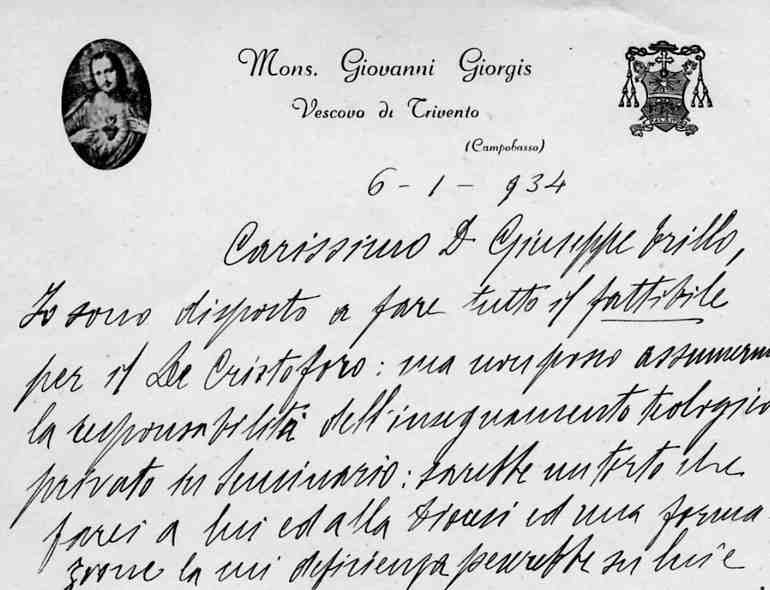 Mons. Giovanni Giorgis
Vescovo di Trivento
(Campobasso)
6 - 1 - 934
Carissimo D. Giuseppe Trillo,
Io sono disposto a fare tutto il fattibile
per il De Cristoforo: ma non posso assumerm
la responsabilità dell'insegnamento teologico
privato in Seminario: sarebbe un torto che
farei a lui ed alla Diocesi ed una forma
zione la cui deficienza peserebbe su lui e